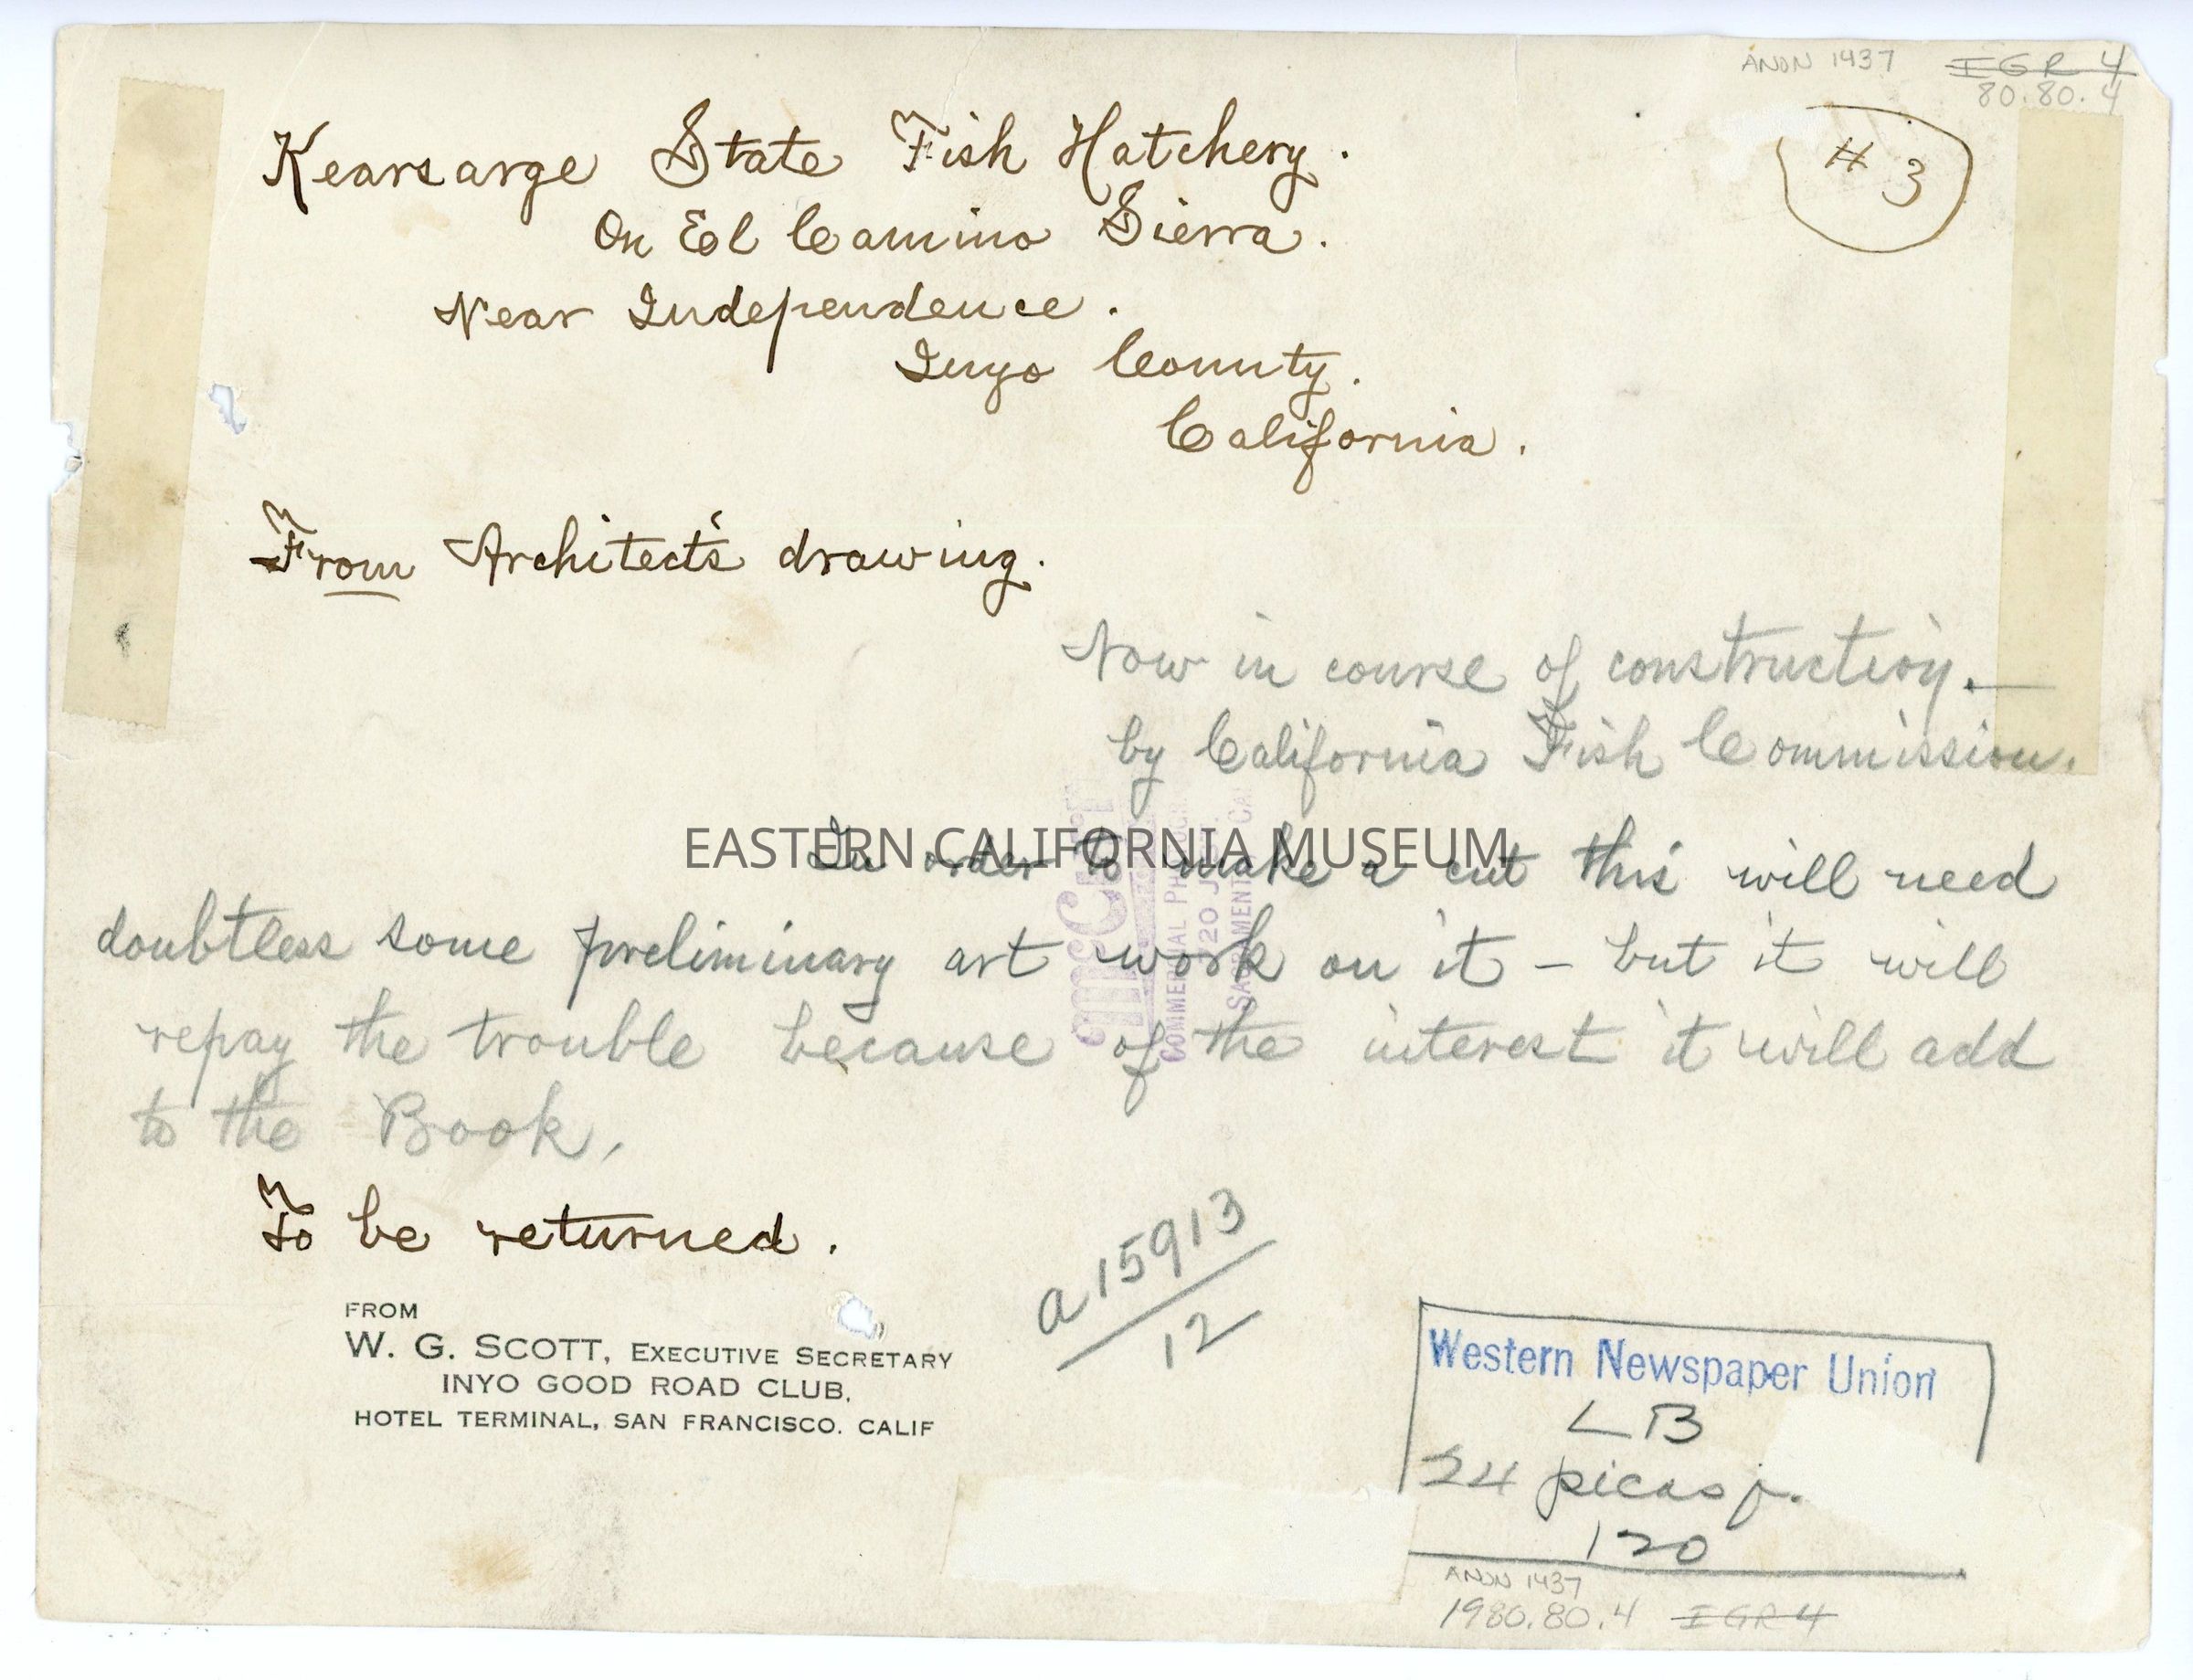 ANON 1437 IGR 4
80.80.4
# 3
Kearsarge State Fish Hatchery.
On El Camino Sierra.
Near Independence.
Inyo County.
California.
From Architect's drawing.
Now in course of construction.—
by California Fish Commission.
EASTERN CALIFORNIA MUSEUM
In order to make a cut this will need
doubtless some preliminary art work on it – but it will
repay the trouble because of the interest it will add
to the Book.
COMMERCIAL
To be returned.
a 15913
12
FROM
W. G. SCOTT, EXECUTIVE SECRETARY
INYO GOOD ROAD CLUB,
HOTEL TERMINAL, SAN FRANCISCO. CALIF
Western Newspaper Union
LB
24 picas
120
ANON 1437
1980.80.4 IGR 4